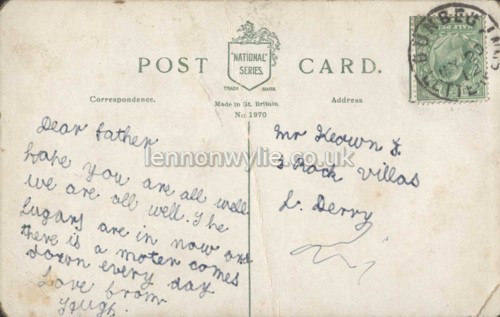 "NATIONAL"
SERIES.
POST CARD.
TRADE MARK
Correspondence.
Made in Gt. Britain.
Address
No 1970
Dear father
hope you are all well
we are all well. The
Lugars are in now and
there is a moter comes
down every day
Love from
Hugh.
Mr Keown J.
3 Rock Villas
L. Derry
lennonwylie.co.uk